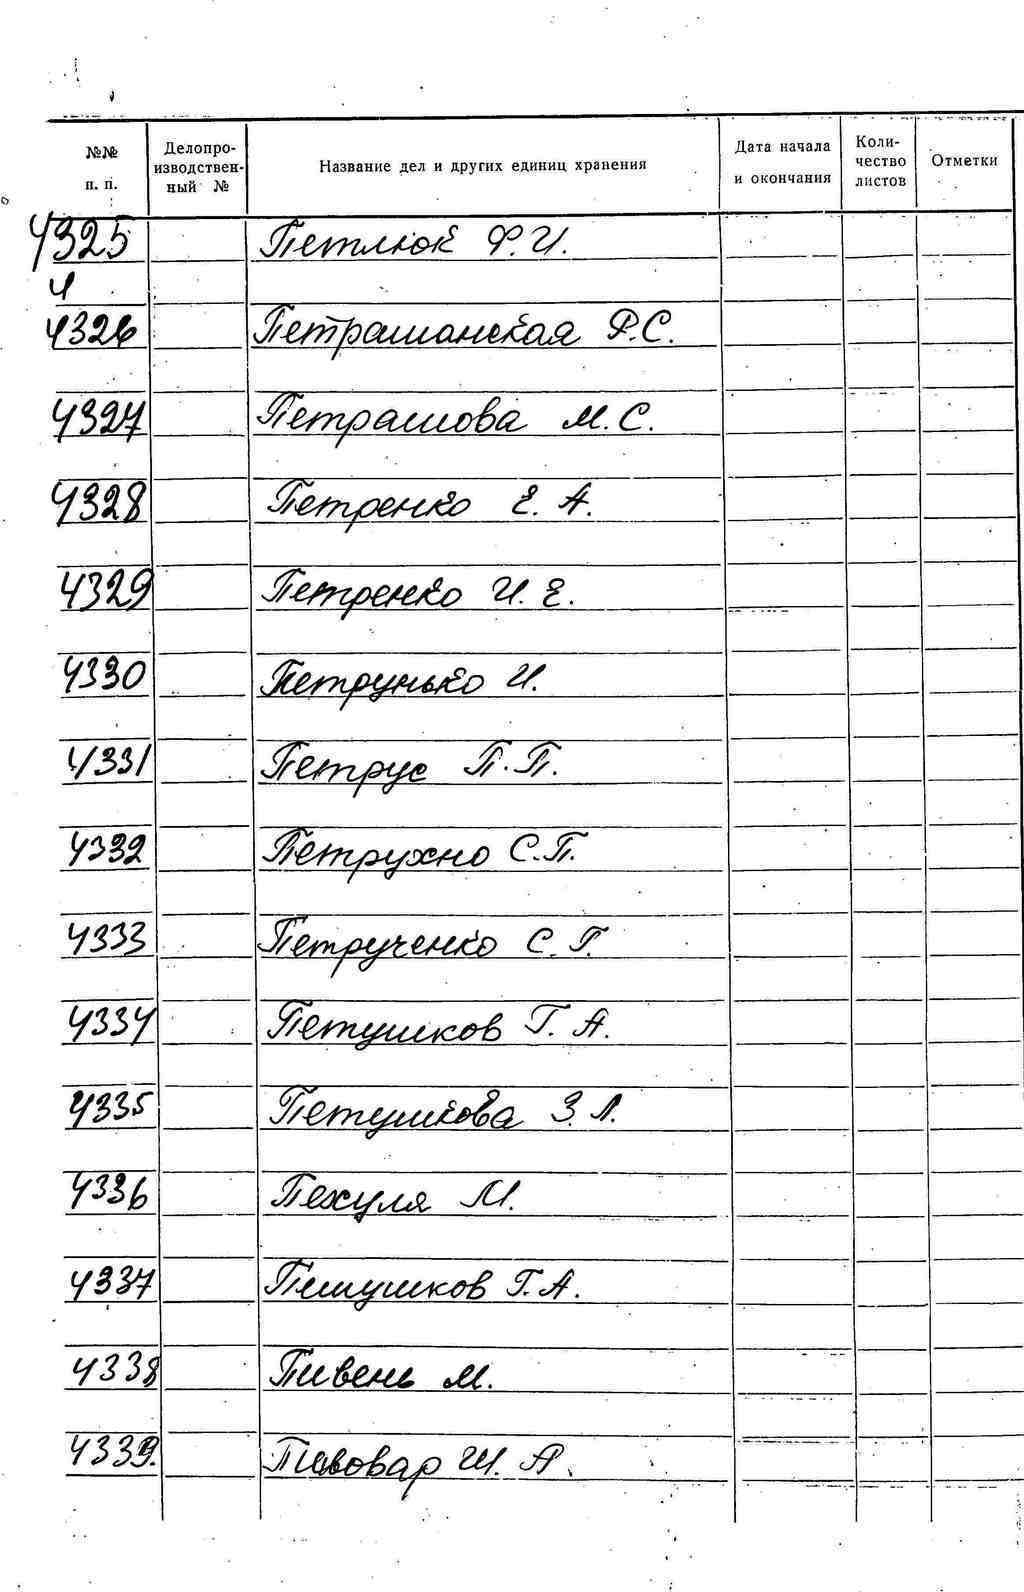 №№ п. п. Делопро-изводствен-ный № Название дел и других единиц хранения Дата начала и окончания Коли-чество листов Отметки
4325 Петлюк Ф.И.
4
4326 Петрашанская Р.С.
4327 Петрашова М.С.
4328 Петренко Е. А.
4329 Петренко И. Е.
4330 Петрунько И.
4331 Петрус П.П.
4332 Петрухно С.П.
4333 Петрученко С. Г.
4334 Петушков Г. А.
4335 Петушкова З. Л.
4336 Пехуля М.
4337 Пешушков Г. А.
4338 Пивень М.
4339. Пивовар Ш. А.